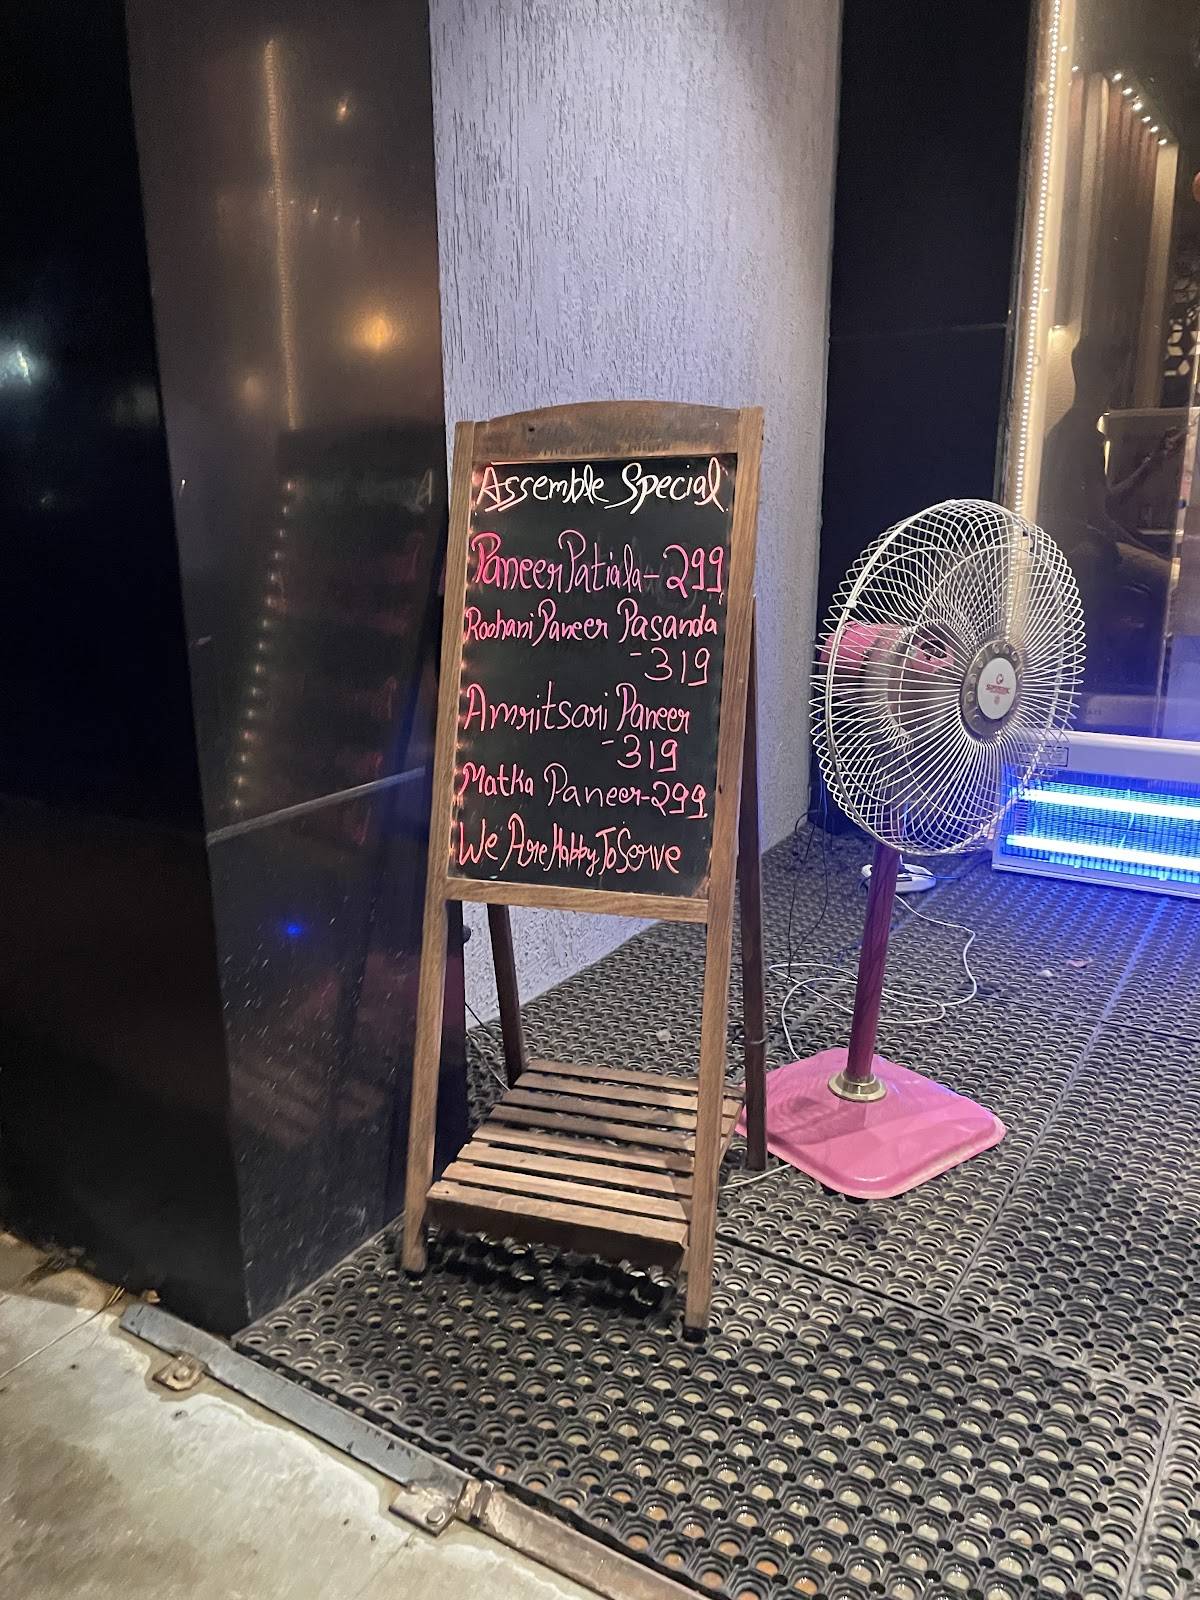 Assemble Special
Paneer Patiala - 299
Roohani Paneer Pasanda
- 319
Amritsari Paneer
- 319
Matka Paneer - 299
We Are Habby To Serve